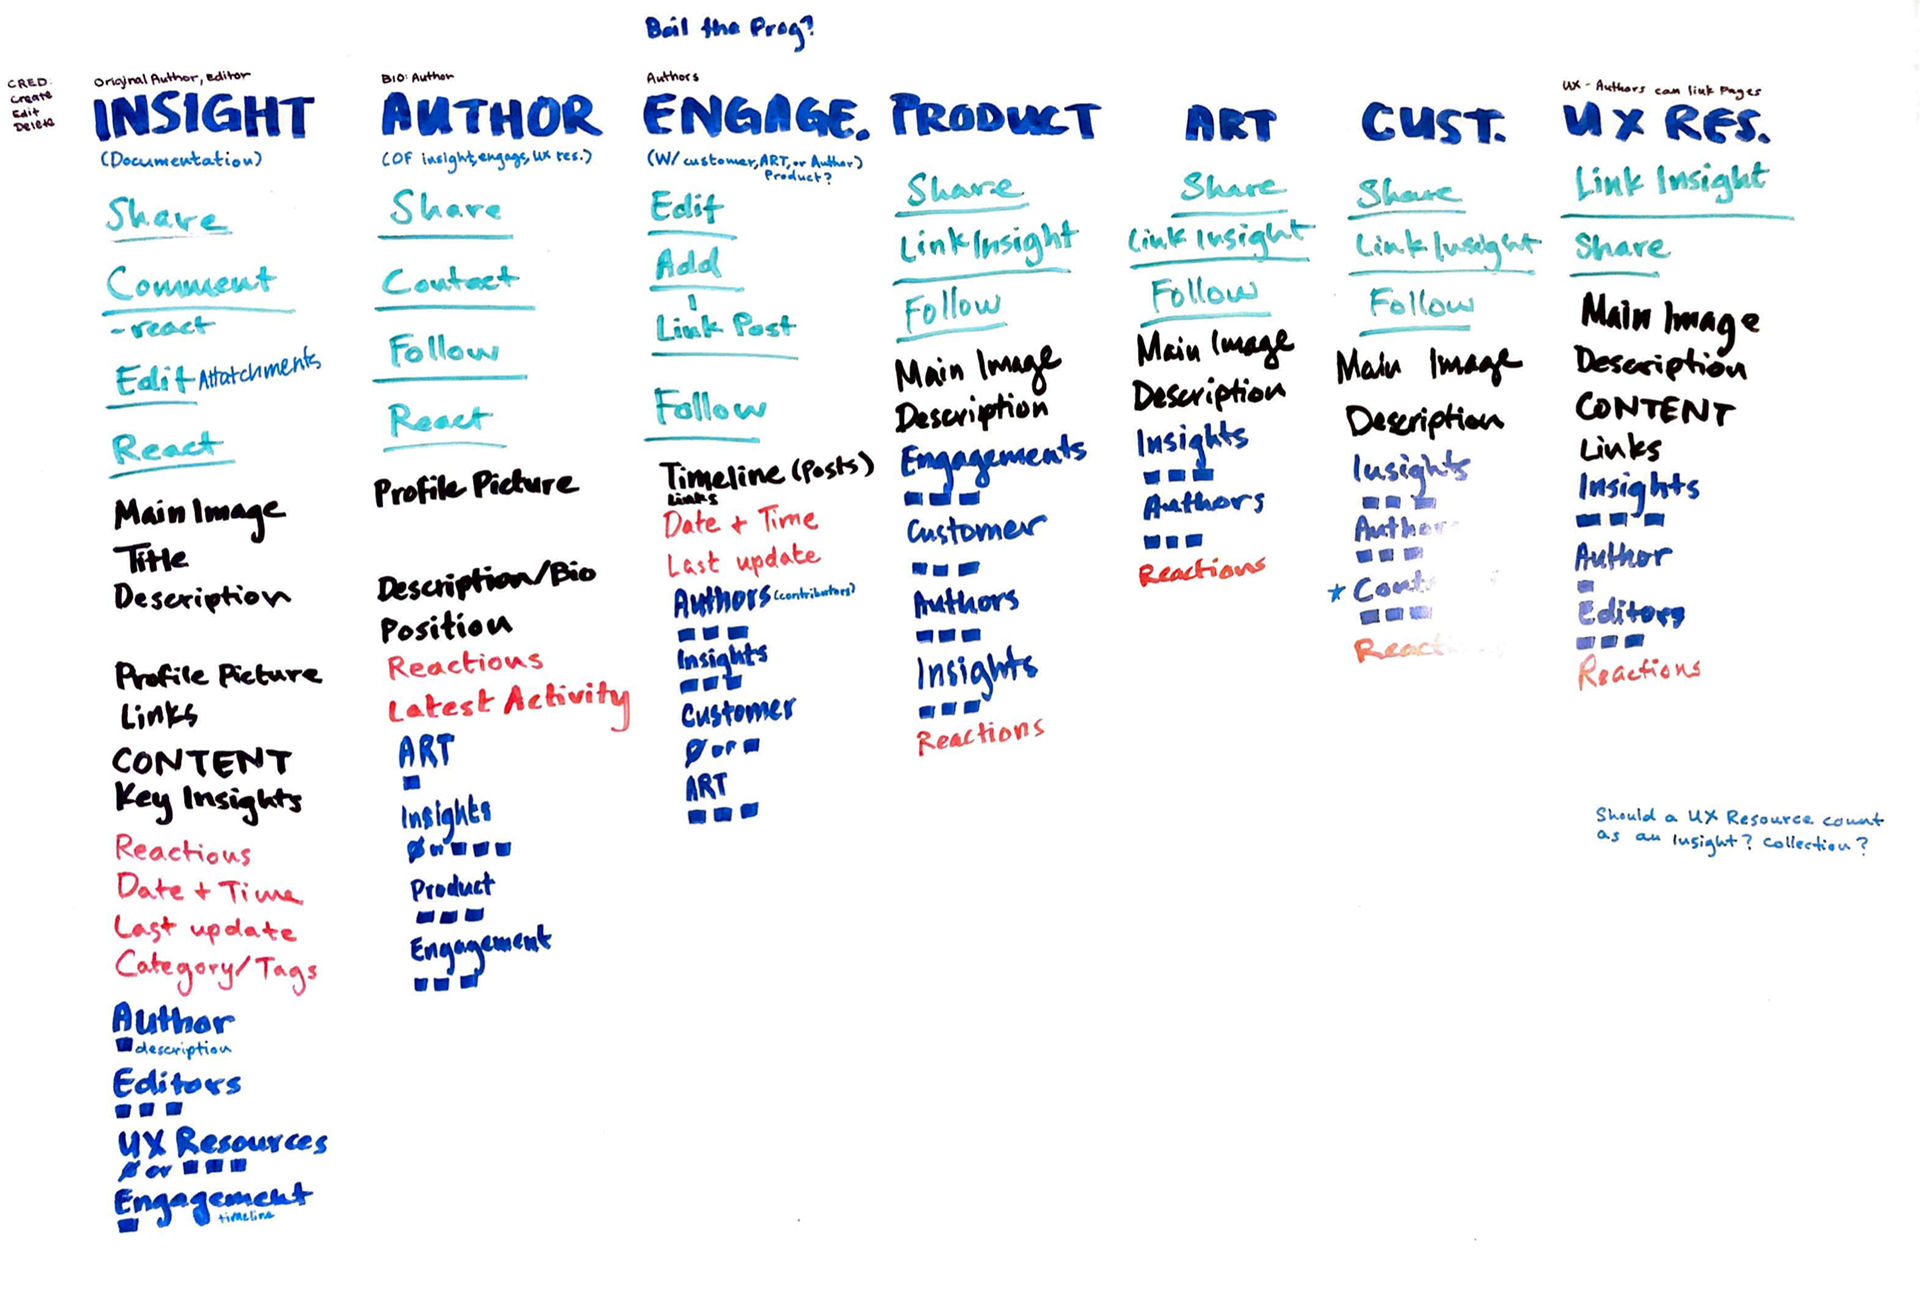 Boil the Frog?
CRED:
Create
Edit
Delete
Original Author, Editor
INSIGHT
(Documentation)
Share
Comment
-react
Edit Attatchments
React
Main Image
Title
Description
Profile Picture
Links
CONTENT
Key Insights
Reactions
Date + Time
Last update
Category/Tags
Author
description
Editors
UX Resources
Ø or
Engagement
timeline
BIO: Author
AUTHOR
(OF insight, engage, UX res.)
Share
Contact
Follow
React
Profile Picture
Description/Bio
Position
Reactions
Latest Activity
ART
Insights
Ø or
Product
Engagement
Authors
ENGAGE.
(W/ customer, ART, or Author)
Product?
Edit
Add
Link Post
Follow
Timeline (Posts)
Links
Date + Time
Last update
Authors (contributors)
Insights
Customer
Ø or
ART
PRODUCT
Share
Link Insight
Follow
Main Image
Description
Engagements
Customer
Authors
Insights
Reactions
ART
Share
Link Insight
Follow
Main Image
Description
Insights
Authors
Reactions
CUST.
Share
Link Insight
Follow
Main Image
Description
Insights
Author
* Cont
React
UX - Authors can link pages
UX RES.
Link Insight
Share
Main Image
Description
CONTENT
Links
Insights
Author
Editors
Reactions
Should a UX Resource count
as an Insight? Collection?